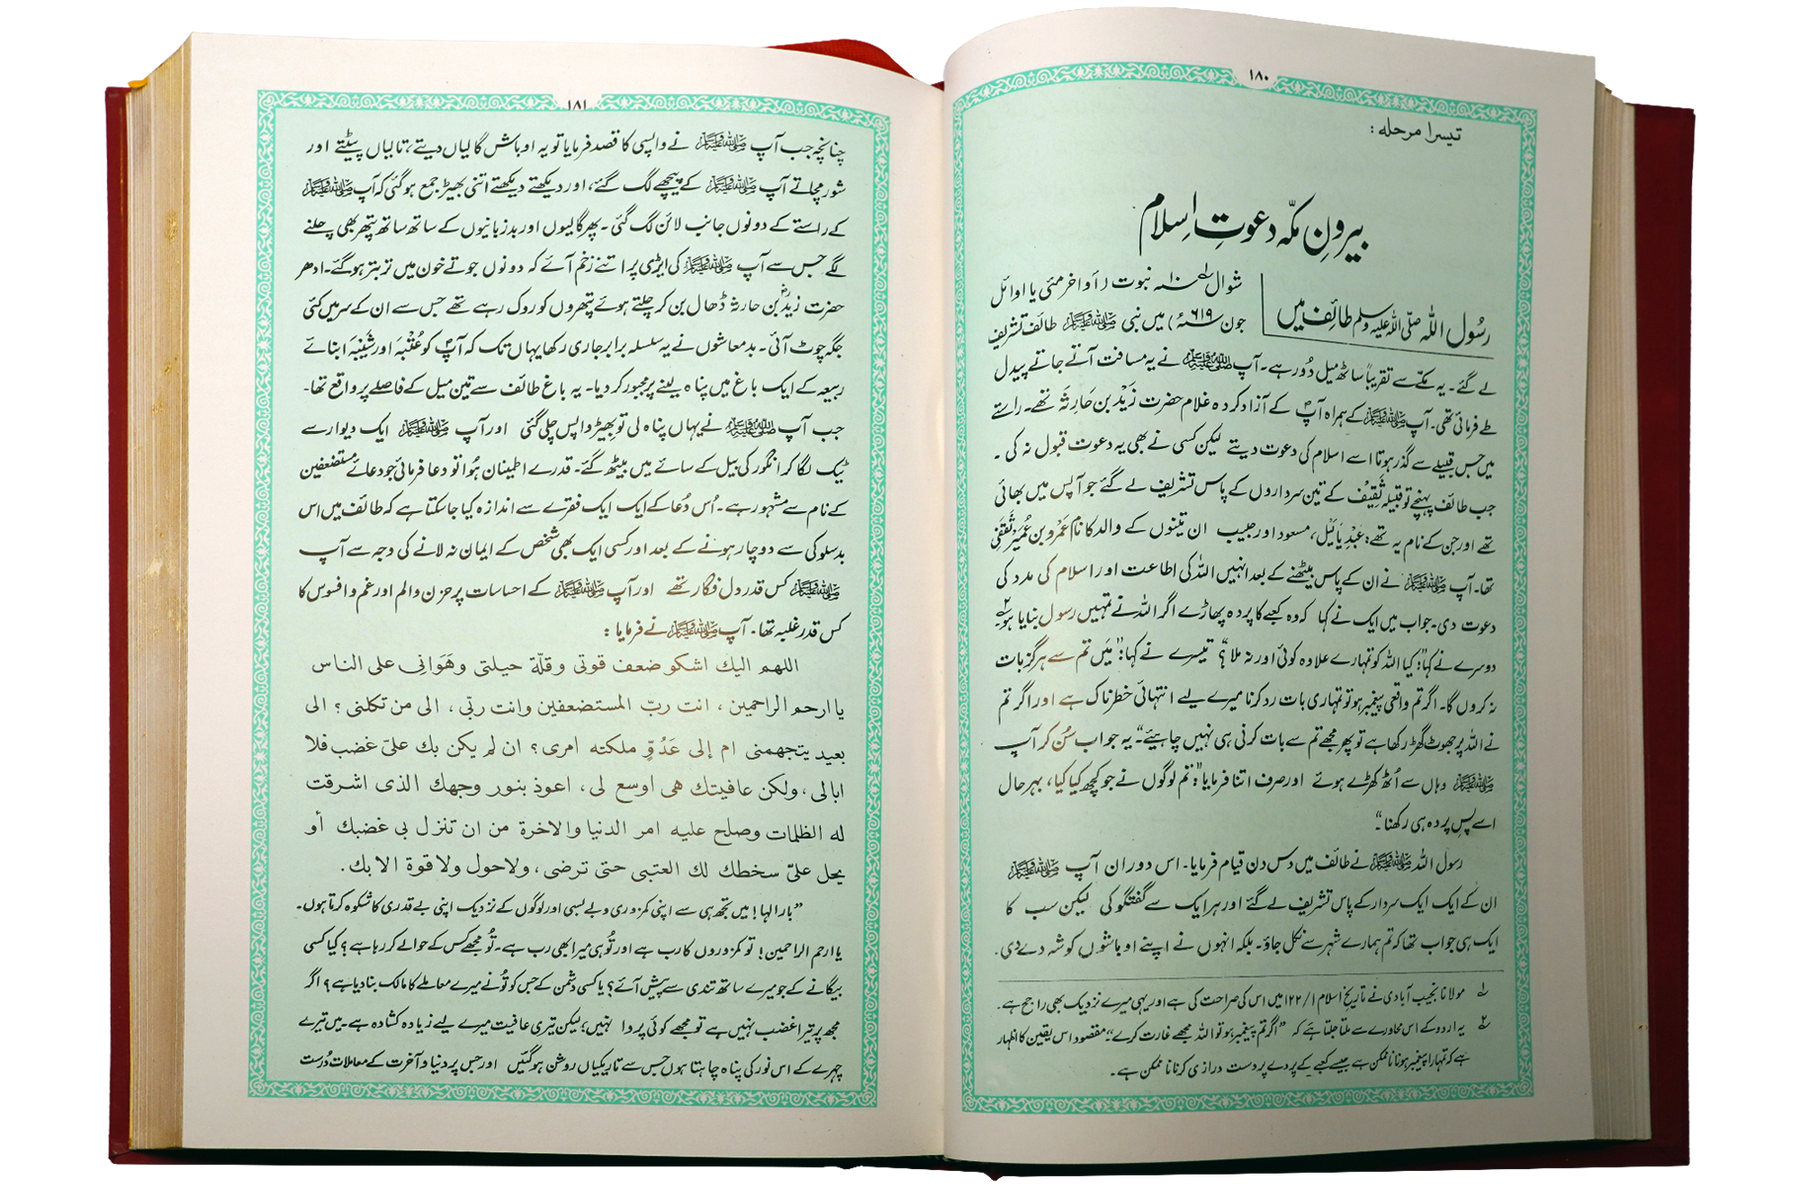 ۱۸۰
تیسرا مرحلہ:
بیرونِ مکّہ دعوتِ اِسلام
رسُول اللہ صلی اللہ علیہ وسلم طائف میں
شوال ۱۰ نبوت (اَواخر مئی یا اوائل
جون ۶۱۹ء) میں نبی ﷺ طائف تشریف
لے گئے۔ یہ مکّے سے تقریباً ساٹھ میل دُور ہے۔ آپ ﷺ نے یہ مسافت آتے جاتے پیدل
طے فرمائی تھی۔ آپ ﷺ کے ہمراہ آپؐ کے آزاد کردہ غلام حضرت زَیْد بن حَارِثَہ تھے۔ راستے
میں جس قبیلے سے گذر ہوتا اسے اسلام کی دعوت دیتے لیکن کسی نے بھی یہ دعوت قبول نہ کی۔
جب طائف پہنچے تو قبیلہ ثَقِیْف کے تین سرداروں کے پاس تشریف لے گئے جو آپس میں بھائی
تھے اور جن کے نام یہ تھے: عَبْدِ یَالَیْل، مسعود اور حبیب ان تینوں کے والد کا نام عَمرو بن عُمَیْر ثَقَفِی
تھا۔ آپ ﷺ نے ان کے پاس بیٹھنے کے بعد انہیں اللہ کی اطاعت اور اسلام کی مدد کی
دعوت دی۔ جواب میں ایک نے کہا کہ وہ کعبے کا پردہ پھاڑے اگر اللہ نے تمہیں رسول بنایا ہو۔۲
دوسرے نے کہا: "کیا اللہ کو تمہارے علاوہ کوئی اور نہ ملا؟" تیسرے نے کہا: "میں تم سے ہرگز بات
نہ کروں گا۔ اگر تم واقعی پیغمبر ہو تو تمہاری بات رد کرنا میرے لیے انتہائی خطرناک ہے اور اگر تم
نے اللہ پر جھوٹ گھڑ رکھا ہے تو پھر مجھے تم سے بات کرنی ہی نہیں چاہیئے"۔ یہ جواب سُن کر آپ
ﷺ وہاں سے اُٹھ کھڑے ہوئے اور صرف اتنا فرمایا: "تم لوگوں نے جو کچھ کیا کیا، بہر حال
اسے پسِ پردہ ہی رکھنا"۔
رسول اللہ ﷺ نے طائف میں دس دن قیام فرمایا۔ اس دوران آپ ﷺ
ان کے ایک ایک سردار کے پاس تشریف لے گئے اور ہر ایک سے گفتگو کی لیکن سب کا
ایک ہی جواب تھا کہ تم ہمارے شہر سے نکل جاؤ۔ بلکہ انہوں نے اپنے اوباشوں کو شہ دے دی۔
۱؎ مولانا نجیب آبادی نے تاریخ اسلام ۱/۱۲۲ میں اس کی صراحت کی ہے اور یہی میرے نزدیک بھی راجح ہے۔
۲؎ یہ اردو کے اس محاورے سے ملتا جلتا ہے کہ "اگر تم پیغمبر ہو تو اللہ مجھے غارت کرے"۔ مقصود اس یقین کا اظہار
ہے کہ تمہارا پیغمبر ہونا ناممکن ہے جیسے کعبے کے پردے پر دست درازی کرنا ناممکن ہے۔
۱۸۱
چنانچہ جب آپ ﷺ نے واپسی کا قصد فرمایا تو یہ اوباش گالیاں دیتے، تالیاں پیٹتے اور
شور مچاتے آپ ﷺ کے پیچھے لگ گئے، اور دیکھتے دیکھتے اتنی بھیڑ جمع ہو گئی کہ آپ ﷺ
کے راستے کے دونوں جانب لائن لگ گئی۔ پھر گالیوں اور بد زبانیوں کے ساتھ ساتھ پتھر بھی چلنے
لگے جس سے آپ ﷺ کی ایڑی پر اتنے زخم آئے کہ دونوں جوتے خون میں تر بتر ہو گئے۔ ادھر
حضرت زیدؓ بن حارثہ ڈھال بن کر چلتے ہوئے پتھروں کو روک رہے تھے جس سے ان کے سر میں کئی
جگہ چوٹ آئی۔ بدمعاشوں نے یہ سلسلہ برابر جاری رکھا یہاں تک کہ آپؐ کو عُتْبَہ اور شَیْبَہ ابنائے
ربیعہ کے ایک باغ میں پناہ لینے پر مجبور کر دیا۔ یہ باغ طائف سے تین میل کے فاصلے پر واقع تھا۔
جب آپ ﷺ نے یہاں پناہ لی تو بھیڑ واپس چلی گئی اور آپ ﷺ ایک دیوار سے
ٹیک لگا کر انگور کی بیل کے سائے میں بیٹھ گئے۔ قدرے اطمینان ہُوا تو دعا فرمائی جو دعائے مستضعفین
کے نام سے مشہور ہے۔ اُس دُعا کے ایک ایک فقرے سے اندازہ کیا جا سکتا ہے کہ طائف میں اس
بدسلوکی سے دوچار ہونے کے بعد اور کسی ایک بھی شخص کے ایمان نہ لانے کی وجہ سے آپ
ﷺ کس قدر دل فگار تھے اور آپ ﷺ کے احساسات پر حزن والم اور غم و افسوس کا
کس قدر غلبہ تھا۔ آپ ﷺ نے فرمایا:
اللهم اليك اشكو ضعف قوتى وقلّة حيلتى وهَوَانِى على الناس
يا ارحم الراحمين، انت ربّ المستضعفين وانت ربّى، الى من تكلنى؟ الى
بعيد يتجهمنى ام إلى عَدُوٍّ ملكته امرى؟ ان لم يكن بك علىّ غضب فلا
ابالى، ولكن عافيتك هى اوسع لى، اعوذ بنور وجهك الذى اشرقت
له الظلمات وصلح عليه امر الدنيا والاخرة من ان تنزل بى غضبك أو
يحل علىّ سخطك لك العتبى حتى ترضى، ولا حول ولا قوة الا بك.
"بارالہا! میں تجھ ہی سے اپنی کمزوری و بے بسی اور لوگوں کے نزدیک اپنی بے قدری کا شکوہ کرتا ہوں۔
یا ارحم الراحمین! تو کمزوروں کا رب ہے اور تُو ہی میرا بھی رب ہے۔ تُو مجھے کس کے حوالے کر رہا ہے؟ کیا کسی
بیگانے کے جو میرے ساتھ تندی سے پیش آئے؟ یا کسی دشمن کے جس کو تُو نے میرے معاملے کا مالک بنا دیا ہے؟ اگر
مجھ پر تیرا غضب نہیں ہے تو مجھے کوئی پروا نہیں؛ لیکن تیری عافیت میرے لیے زیادہ کشادہ ہے۔ میں تیرے
چہرے کے اس نور کی پناہ چاہتا ہوں جس سے تاریکیاں روشن ہو گئیں اور جس پر دنیا و آخرت کے معاملات دُرست